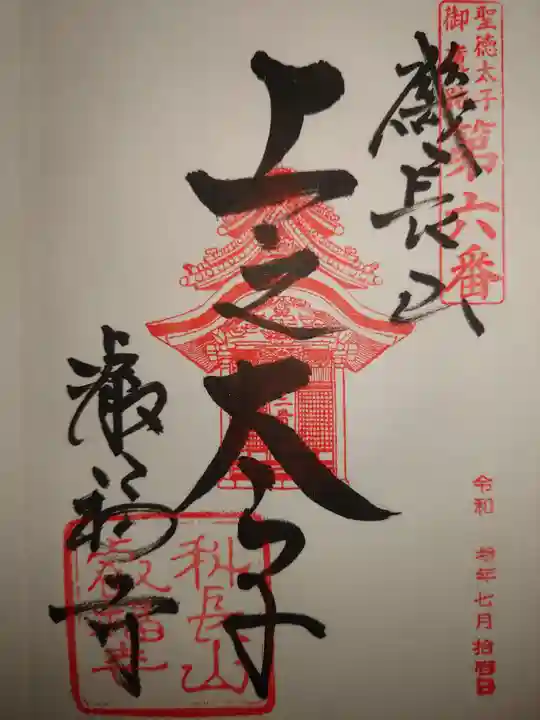 聖徳太子
御遺跡
第六番
磯長山
上之太子
叡福寺
科長山
叡福寺
令和 年七月拾四日